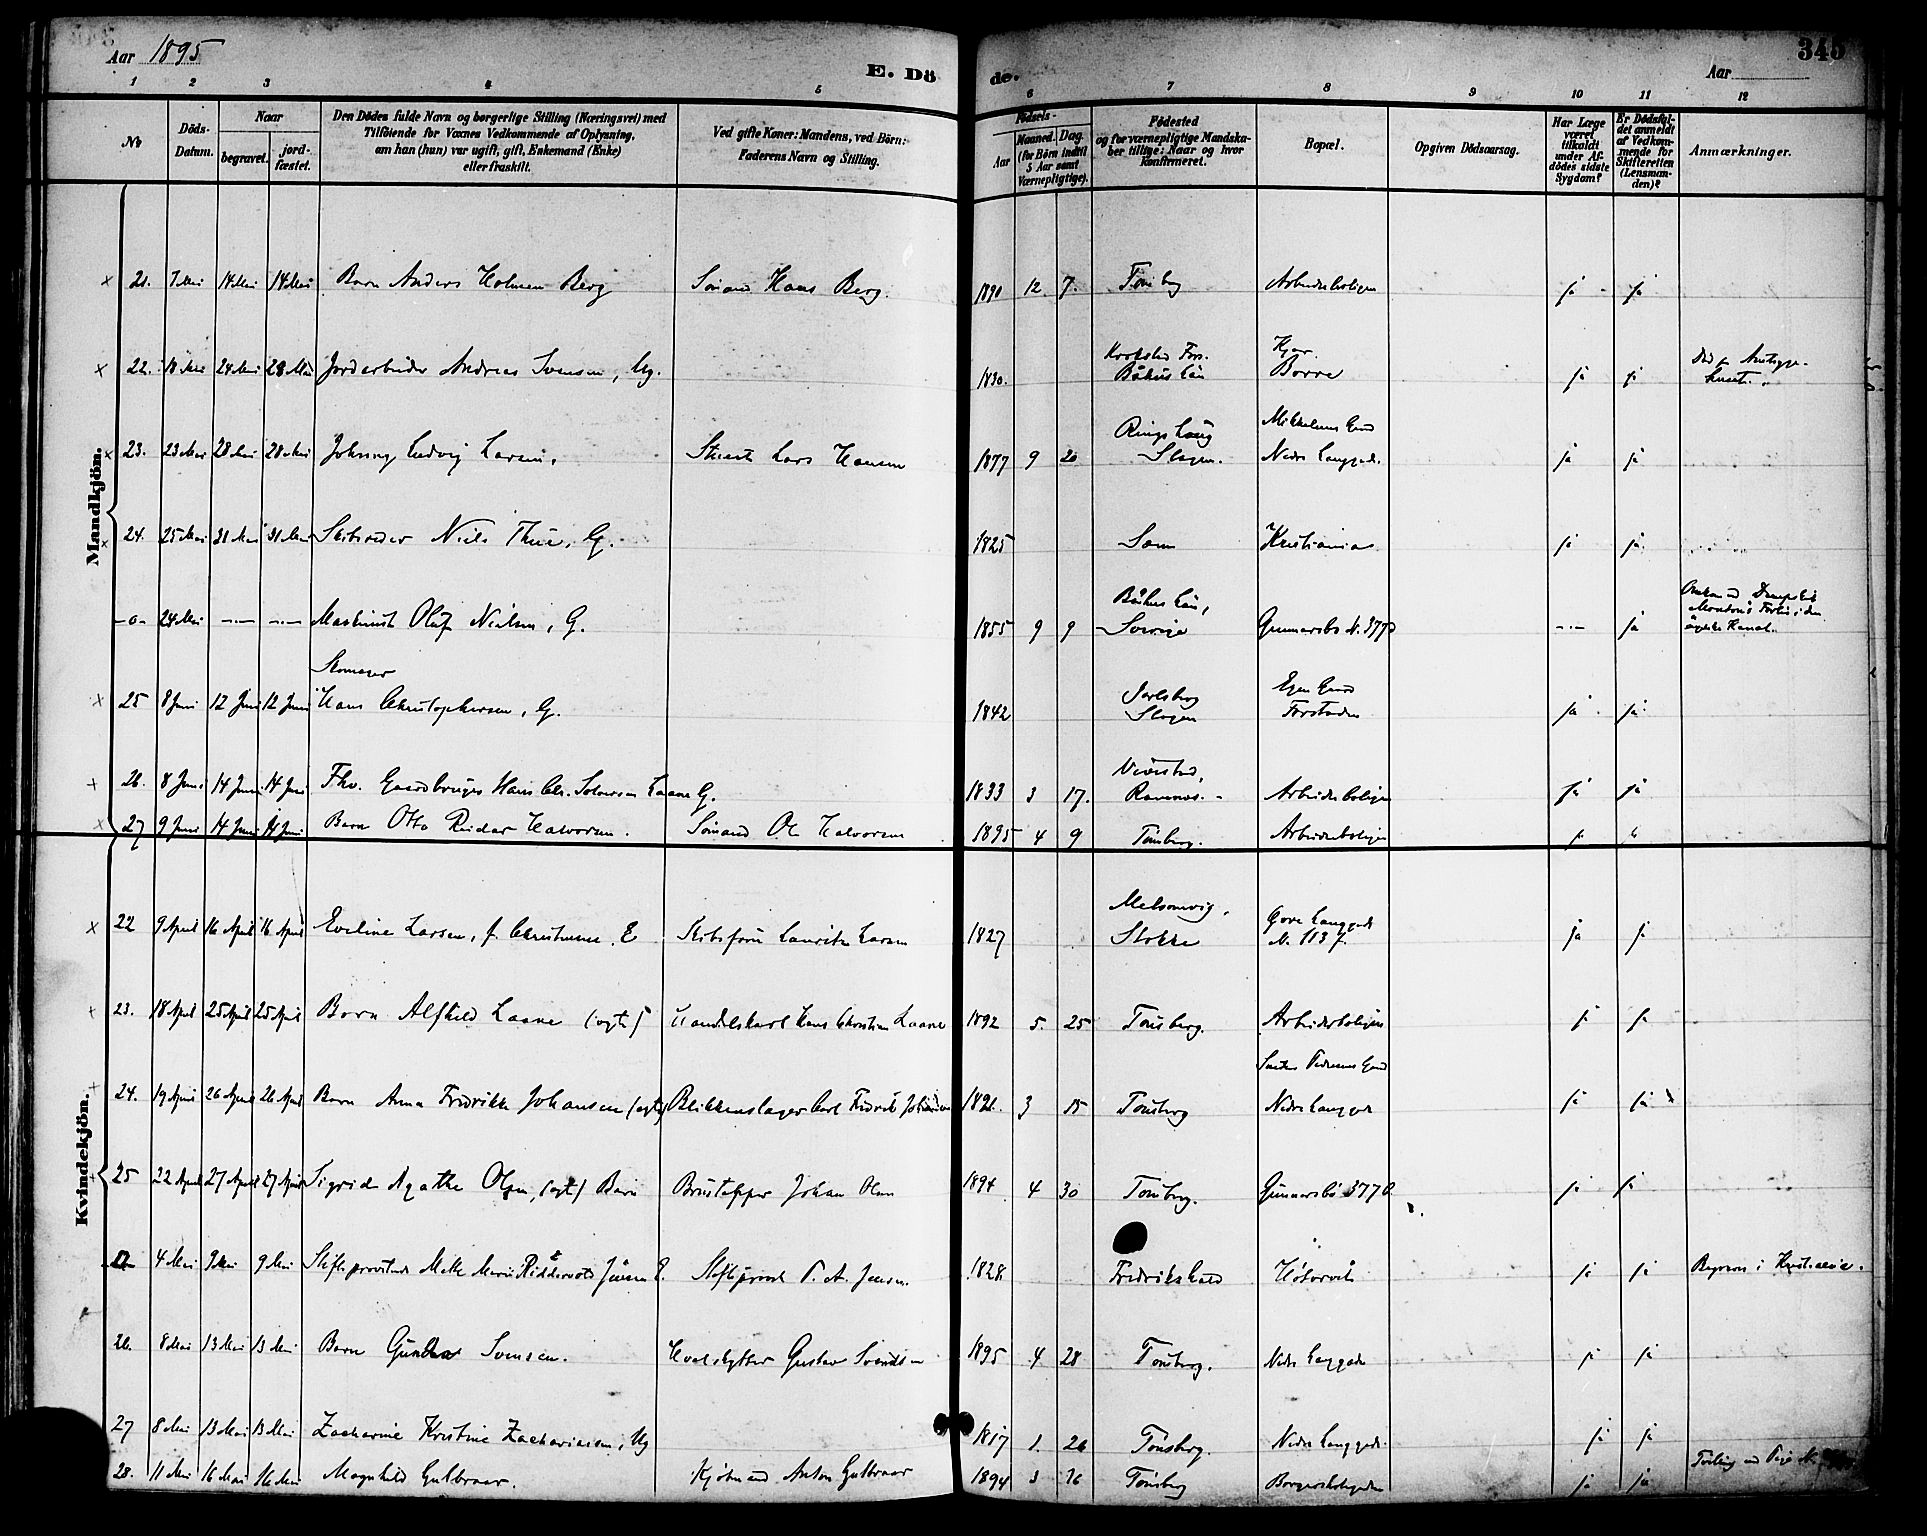 Aar 1895
E. Dö
de.
345
Aar
1 2 3 4 5 6 7 8 9 10 11 12
No
Döds-Datum.
Naar
begravet.
jord-fæstet.
Den Dödes fulde Navn og borgerlige Stilling (Næringsvei) med
Tilföiende for Voxnes Vedkommende af Oplysning,
om han (hun) var ugift, gift, Enkemand (Enke)
eller fraskilt.
Ved gifte Koner: Mandens, ved Börn:
Faderens Navn og Stilling.
Födsels-
Aar
Maaned.
Dag.
(for Börn indtil
5 Aar samt
Værnepligtige).
Födested
og for værnepligtige Mandska-
ber tillige: Naar og hvor
konfirmeret.
Bopæl.
Opgiven Dödsaarsag.
Har Læge
været
tilkaldt
under Af-
dödes sidste
Sygdom?
Er Dödsfal-
det anmeldt
af Vedkom-
mende for
Skifteretten
(Lensman-
den)?
Anmærkninger.
Mandkjön.
21. 7 Mai 14 Mai 14 Mai Barn Anders Holmen Berg Sömand Hans Berg. 1890 12 7. Tönsberg Arbeiderboligen ja ja
22. 18 Mai 24 Mai 28 Mai Jordarbeider Andreas Svensen, Ug. 1830. Båhus län Borre ja ja
23. 23 Mai 28 Mai 28 Mai Johnny Ludvig Larsen. Stuert Lars Hansen 1877 9 20 Slagen. Nedre Langgade. ja ja
24. 25 Mai 31 Mai 31 Mai Skibsreder Niels Thue, G. 1825 Kristiania ja ja
-0- 24 Mai -"- -"- Maskinist Olaf Nielsen, G. 1855 9 9 Båhus län, Sverige Gunnarsbö N. 377 -"- ja
25 8 Juni 12 Juni 12 Juni Skomager Hans Christophersen, G. 1842 Jarlsberg Slagen Egen Gaard Forstaden ja ja
26. 8 Juni 14 Juni 14 Juni Fhv. Gaardbruger Hans Chr. Laane G. 1833 3 17. Ramnes. Arbeiderboligen ja ja
27 9 Juni 14 Juni 14 Juni Barn Otto Reidar Halvorsen. Sömand Ol Halvorsen 1895 4 9 Tönsberg. Arbeiderboligen
Kvindekjön.
22 9 April 16 April 16 April Eveline Larsen, f. Christensen, E Skibsförer Lauritz Larsen 1827 Melsomvig, Stokke Övre Langgade N. 1137. ja ja
23. 18 April 25 April 25 April Barn Alfhild Laane (ægte) Handelskarl Hans Christian Laane 1892 5. 25 Tönsberg. Arbeiderboligen ja ja
24. 19 April 26 April 26 April Barn Anna Fredrikke Johansen (ægte) Blikkenslager Carl Fredrik Johansen 3 15 Tönsberg Nedre Langgade ja ja
25 22 April 27 April 27 April Sigrid Agathe Olsen, (ægt) Barn Johan Olsen 1894 4 30 Tönsberg. Gunnarsbö 377 ja ja
4 Mai 9 Mai 9 Mai Stiftsprovstinde Mette Marie Riddervold Jensen E. Stiftsprovst P. A. Jensen. 1828 Fredrikshald ja ja Begraven i Kristiania.
26. 8 Mai 13 Mai 13 Mai Barn Gunda Svensen. Hvalskytter Gustav Svendsen 1895 4 28 Tönsberg. Nedre Langgade ja ja
27 8 Mai 13 Mai 13 Mai Zacharine Kristine Zachariassen, Ug 1817 1. 26 Tönsberg. Nedre Langgade. ja ja
28. 11 Mai 16 Mai 16 Mai Magnhild Gulbraar. Kjöbmand Anton Gulbraar 1894 3 16 Tönsberg ja ja